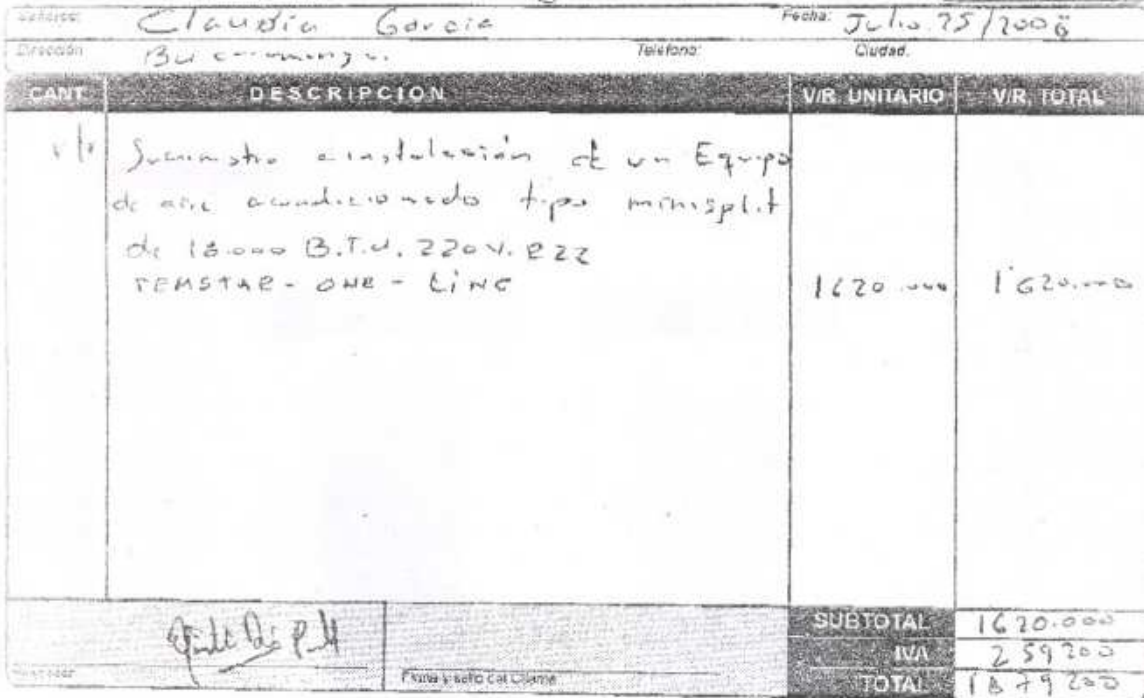 Señores: Claudia Garcia Fecha: Julio. 25/2008
Dirección Bucaramanga. Teléfono: Ciudad:
CANT. DESCRIPCION V/R. UNITARIO V/R. TOTAL
Suministro e instalación de un Equipo
de aire acondicionado tipo minisplit
de 18.000 B.T.U. 220 V. R22
TEMSTAR - ONE - LINE 1620.000 1'620.000
SUBTOTAL 1620.000
IVA 259200
Vendedor Firma y sello del Cliente TOTAL 1879200